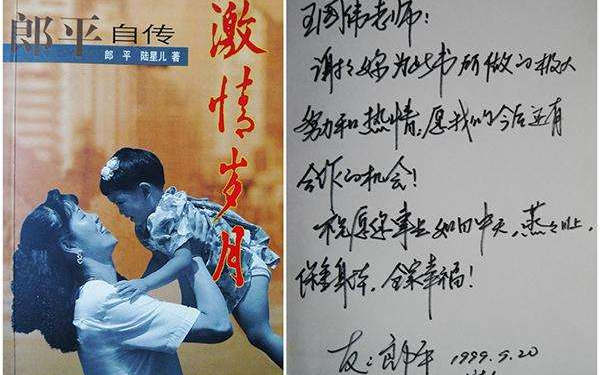 郎平自传
郎 平 陆星儿 著
激情岁月
王国伟老师：
谢谢你为此书所做的极大
努力和热情，愿我们今后还有
合作的机会！
祝愿你事业如日中天，蒸蒸日上，
保重身体，全家幸福！
友：郎平 1999.9.20